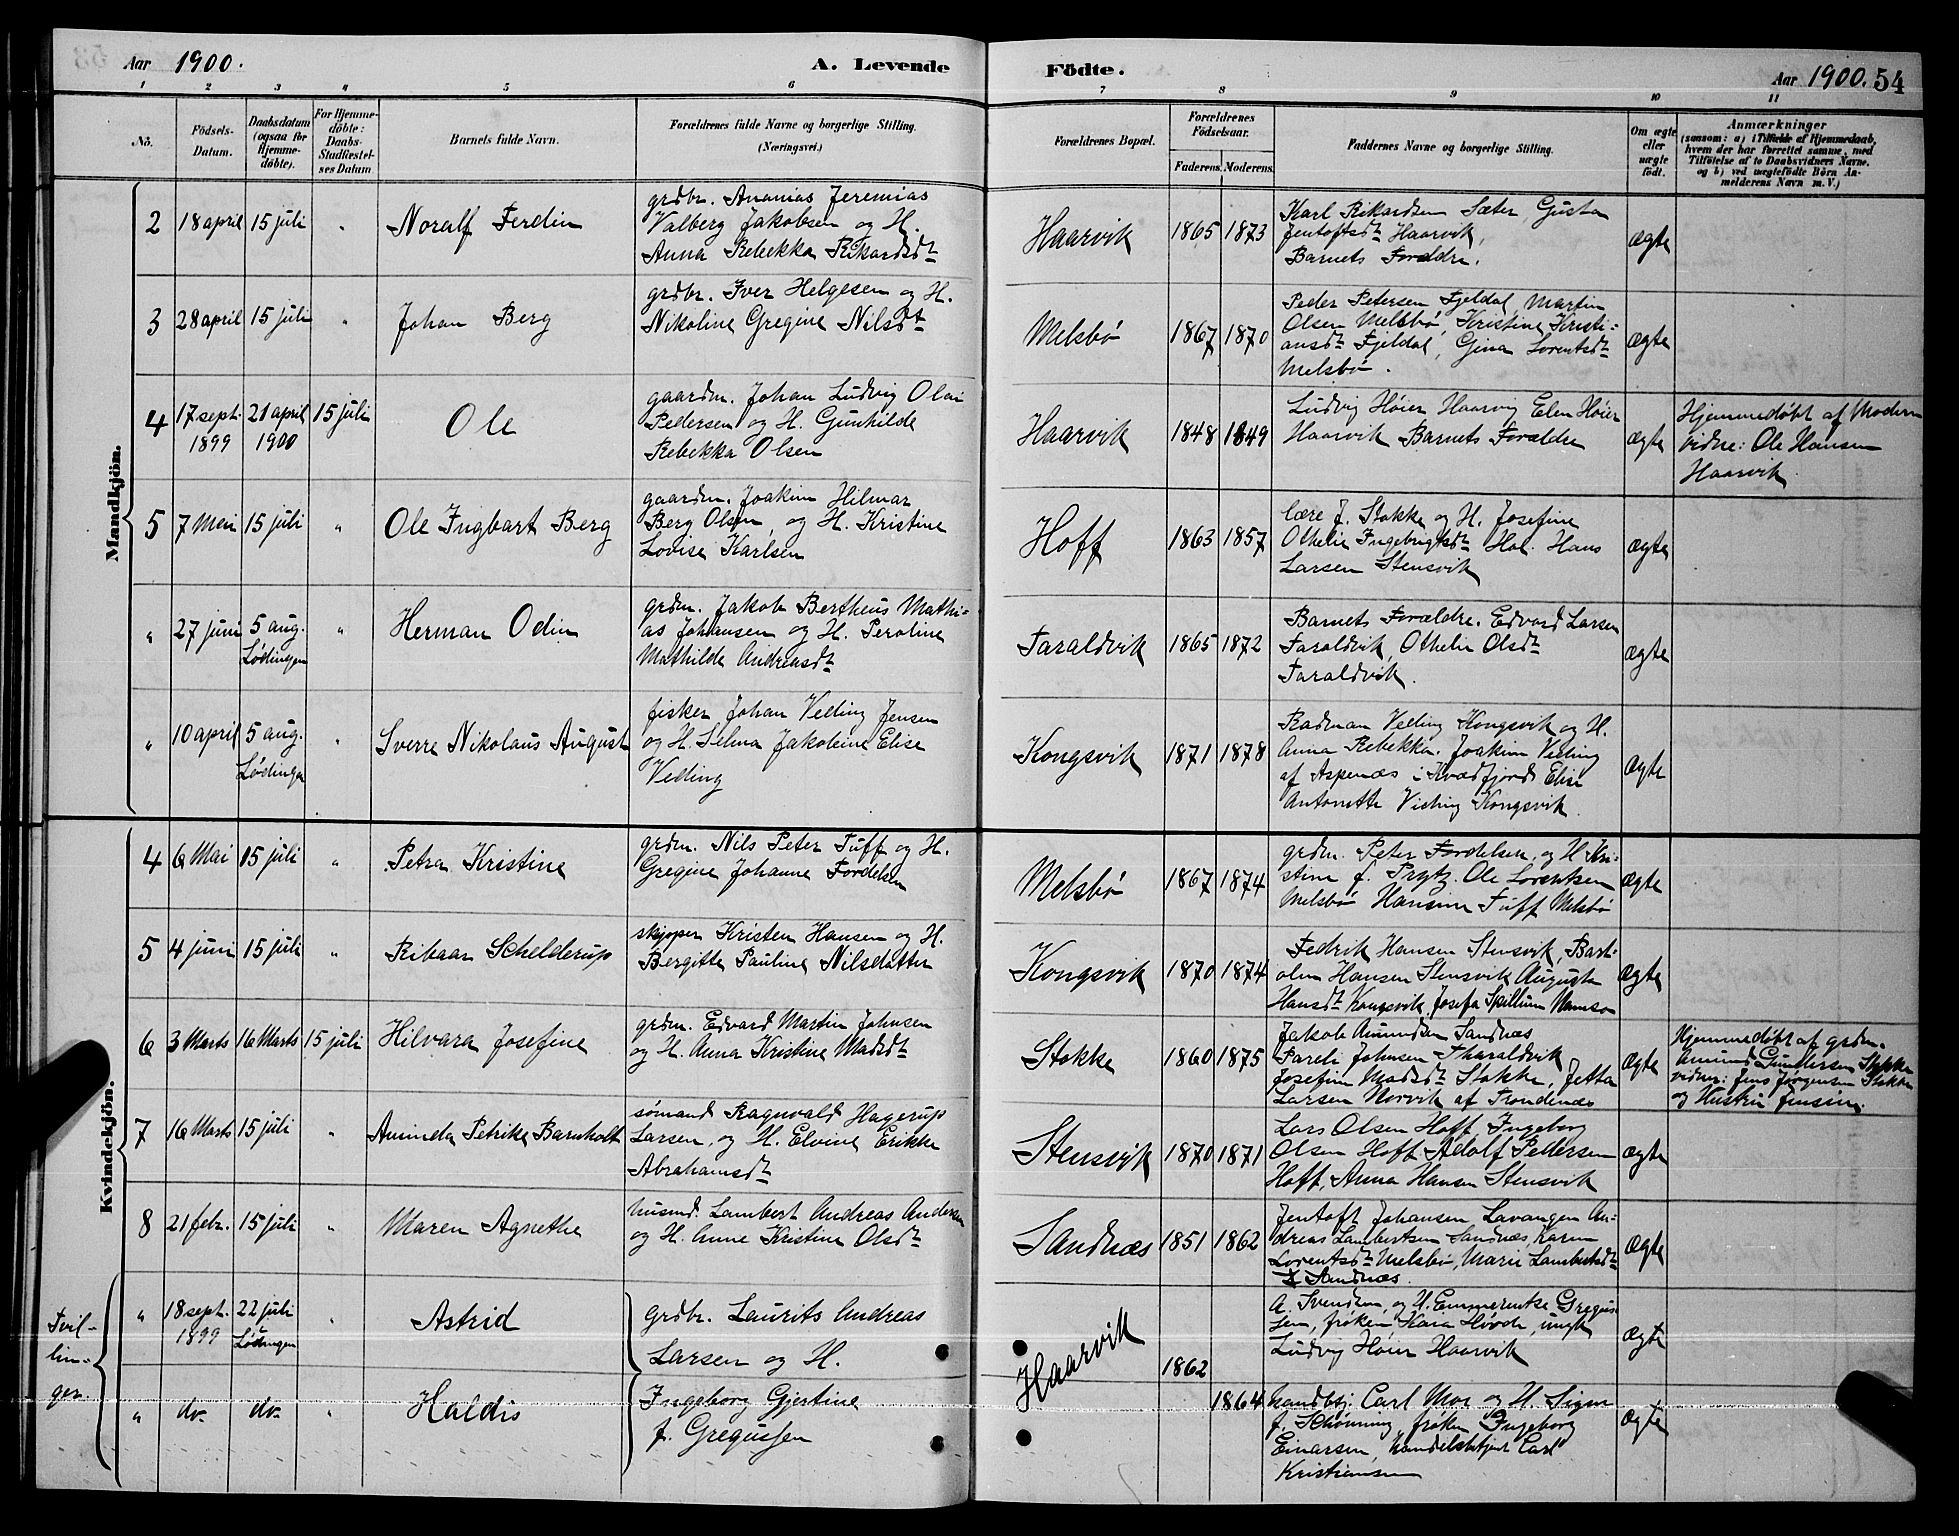 Aar 1900.
A. Levende Födte.
Aar 1900. 54
1 2 3 4 5 6 7 8 9 10 11
No.
Födsels-Datum.
Daabsdatum (ogsaa for Hjemmedöbte).
For Hjemmedöbte: Daabs-Stadfestelses Datum.
Barnets fulde Navn.
Forældrenes fulde Navne og borgerlige Stilling. (Næringsvei.)
Forældrenes Bopæl.
Forældrenes Födselsaar.
Faderens. Moderens.
Faddernes Navne og borgerlige Stilling.
Om ægte eller uægte födt.
Anmærkninger
(saasom: a) i Tilfælde af Hjemmedaab, hvem der har forrettet samme, med Tilföielse af to Daabsvidners Navne, og b) ved uægtefödte Börn Anmelderens Navn m. V.)
Mandkjön.
2 18 april 15 juli " Noralf Ferdin
grdbr. Ananias Jeremias
Valberg Jakobsen og H.
Anna Rebekka Rikardsdt
Haarvik 1865 1873
Karl Rikardsen Sæter, Gusta
Jentoftsdt Haarvik,
Barnets Forældre.
ægte
3 28 april 15 juli " Johan Berg
grdbr. Iver Helgesen og H.
Nikoline Gregine Nilsdt
Melsbø 1867 1870
Peder Petersen Fjeldal, Martin
Olsen Melsbø, Kristine Kristi-
ansdt Fjeldal, Gina Lorentsdt
Melsbø.
ægte
4 17 sept. 1899 21 april 1900 15 juli Ole
gaardm. Johan Ludvig Olai
Pedersen og H. Gunhilde
Rebekka Olsen
Haarvik 1848 1849
Ludvig Høier Haarvig Elen Høier
Haarvik Barnets Forældre
ægte
Hjemmedøbt af Moderen
vidne: Ole Hansen
Haarvik.
5 7 Mai 15 juli " Ole Ingbart Berg
gaardm. Joakim Hilmar
Berg Olsen, og H. Kristine
Lovise Karlsen
Hoff 1863 1857
lære J. Stokke og H. Josefine
Othelie Ingebrigtsdt Hol. Hans
Larsen Stensvik
ægte
" 27 juni 5 aug. Lødingen " Herman Odin
grdm. Jakob Bertheus Mathi-
as Johansen og H. Peroline
Mathilde Andreasdt
Taraldvik 1865 1872
Barnets Forældre. Edvard Larsen
Taraldvik, Othelie Olsdt
Taraldvik.
ægte
" 10 april 5 aug. Lødingen " Sverre Nikolaus August
fisker Johan Veding Jensen
og H. Selma Jakobine Elise
Veding
Kongsvik 1871 1878
Radman Veding Kongsvik og H.
Anna Rebekka. Joakim Veding
af Aspenæs i Kvædfjord Elise
Antonette Viding Kongsvik.
ægte
Kvindekjön.
4 6 Mai 15 juli " Petra Kristine
grdm. Nils Peter Tuff og H.
Gregine Johanne Fordelsen
Melsbø 1867 1874
grdm. Peter Fordelsen, og H Kri-
stine f. Prytz. Ole Lorentsen
Melsbø Hansine Tuff Melsbø
ægte
5 4 juni 15 juli " Ribaar Schelderup
skipper Kristen Hansen og H.
Bergitte Pauline Nilsdatter
Kongsvik 1870 1874
Fedrik Hansen Stensvik, Bart-
olm Hansen Stensvik Augusta
Hansdt Kongsvik, Josefa Spillum Namsos
ægte
6 3 Marts 16 Marts 15 juli Hilvara Josefine
grdm. Edvard Martin Johnsen
og H. Anna Kristine Madsdt
Stokke 1860 1875
Jakob Amundsen Sandnæs
Pareli Johnsen Tharaldvik
Josefine Madsdt Stokke, Jetta
Larsen Norvik af Trondenæs
ægte
Hjemmedøbt af grdm.
Amund Gundersen Stokke
vidner: Jens Jørgensen Stokke
og Hustru Jensine.
7 16 Marts 15 juli " Aminda Petrike Barnholt
sømand Ragnvald Hagerup
Larsen, og H. Elvine Erikke
Abrahamsdt
Stensvik 1870 1871
Lars Olsen Hoff Ingeborg
Olsen Hoff Adolf Pettersen
Hoff, Anna Hansen Stensvik
ægte
8 21 febr. 15 juli " Maren Agnethe
husmd. Lambert Andreas Andersen
og H. Anne Kristine Olsdt
Sandnæs 1851 1862
Jentoft Johansen Lavangen An-
dreas Lambertsen Sandnæs, Karen
Lorentsdt Melsbø, Marie Lambertsdt
Sandnæs.
ægte
Tvil-
lin-
ger.
" 18 sept. 1899 22 juli Lødingen " Astrid
grdbr. Laurits Andreas
Larsen og H.
Haarvik 1862
A. Svendsen, og H. Emmerentse Gregus-
sen, frøken Kara Hovde, ungk.
Ludvig Høier Haarvik
ægte
" do- do- " Haldis
Ingeborg Gjertine
f. Gregussen
1864
handbtj: Carl Moe og H. Signe
f. Schønning, frøken Ingeborg
Einarsen, handelsbetjent Carl
Kristiansen
ægte